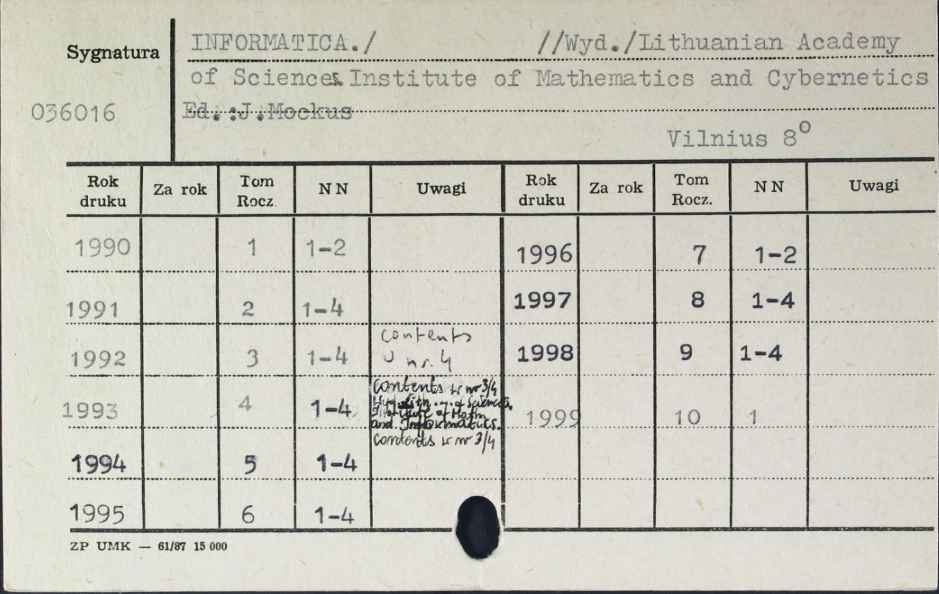 Sygnatura
INFORMATICA./ //Wyd./Lithuanian Academy
of Sciences Institute of Mathematics and Cybernetics
036016
Ed.:J.Mockus
Vilnius 8o
Rok druku Za rok Tom Rocz. NN Uwagi Rok druku Za rok Tom Rocz. NN Uwagi
1990 1 1-2 1996 7 1-2
1991 2 1-4 1997 8 1-4
contents
1992 3 1-4 w nr. 4 1998 9 1-4
contents w nr 3/4
1993 4 1-4 of Sciences, 1999 10 1
Institute of Math.
and Informatics.
contents w nr 3/4
1994 5 1-4
1995 6 1-4
ZP UMK — 61/87 15 000